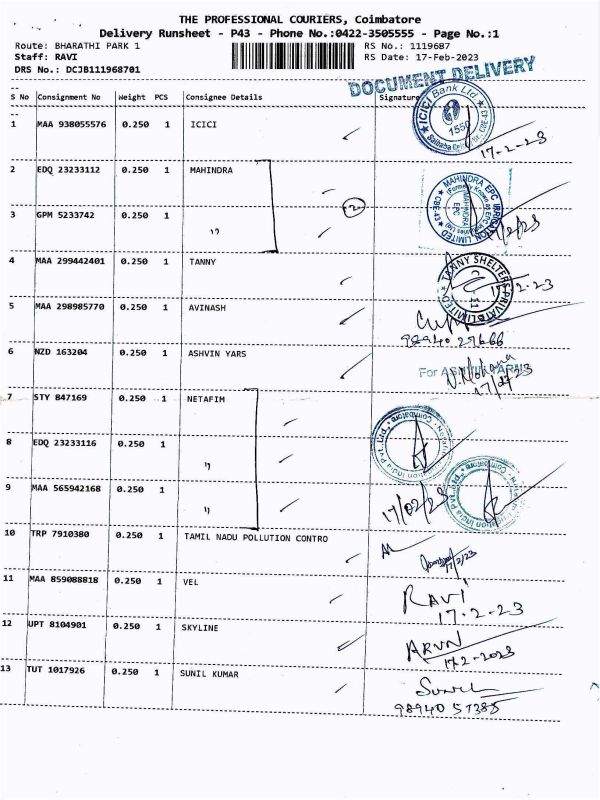 THE PROFESSIONAL COURIERS, Coimbatore
Delivery Runsheet - P43 - Phone No.:0422-3505555 - Page No.:1
Route: BHARATHI PARK 1 RS No.: 1119687
Staff: RAVI RS Date: 17-Feb-2023
DRS No.: DCJB111968701
DOCUMENT DELIVERY
S No Consignment No Weight PCS Consignee Details Signature
1 MAA 938055576 0.250 1 ICICI
ICICI Bank Ltd.
1550
17-2-23
2 EDQ 23233112 0.250 1 MAHINDRA
MAHINDRA EPC IRRIGATION LIMITED
MAHINDRA EPC
CBE-43
2
3 GPM 5233742 0.250 1 "
4 MAA 299442401 0.250 1 TANNY
TANNY SHELTERS PRIVATE LIMITED
17-2-23
5 MAA 298985770 0.250 1 AVINASH
98940 29666
6 NZD 163204 0.250 1 ASHVIN YARS
7 STY 847169 0.250 1 NETAFIM
Coimbatore
8 EDQ 23233116 0.250 1 "
9 MAA 565942168 0.250 1 "
17/02/23
10 TRP 7910380 0.250 1 TAMIL NADU POLLUTION CONTRO
17/2/23
11 MAA 859088818 0.250 1 VEL
RAVI
17-2-23
12 UPT 8104901 0.250 1 SKYLINE
ARUN
17-2-2023
13 TUT 1017926 0.250 1 SUNIL KUMAR
Sunil
98940 57385